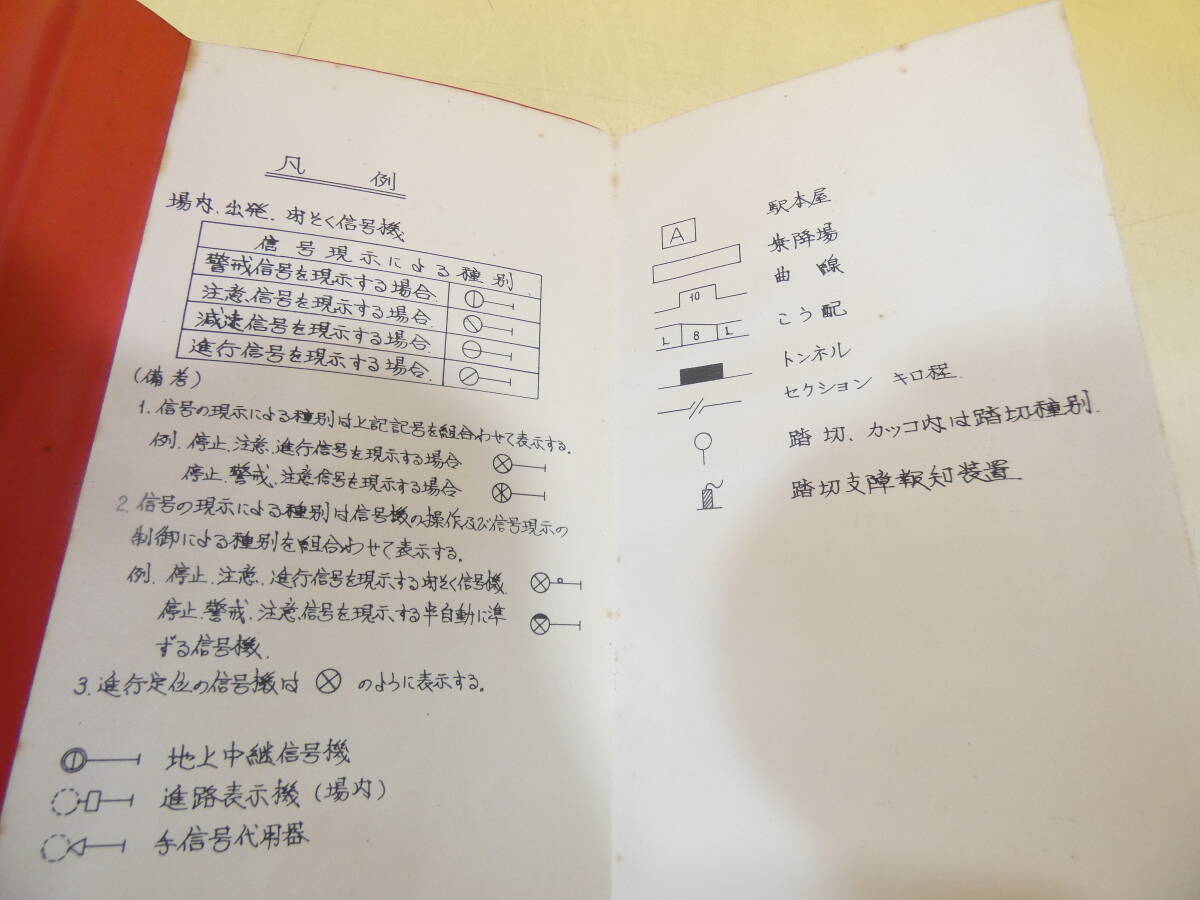 凡例
場内.出発.閉そく信号機
信号現示による種別
警戒信号を現示する場合.
注意信号を現示する場合.
減速信号を現示する場合.
進行信号を現示する場合.
(備考)
1. 信号の現示による種別は上記記号を組合わせて表示する.
例. 停止.注意.進行信号を現示する場合
停止.警戒.注意信号を現示する場合
2. 信号の現示による種別は信号機の操作及び信号現示の
制御による種別を組合わせて表示する.
例. 停止.注意.進行信号を現示する閉そく信号機.
停止.警戒.注意信号を現示する半自動に準
ずる信号機.
3. 進行定位の信号機は のように表示する.
地上中継信号機
進路表示機(場内)
手信号代用器
A 駅本屋
乗降場
10 曲線
L 8 L こう配
トンネル
セクション キロ程.
踏切、カッコ内は踏切種別.
踏切支障報知装置